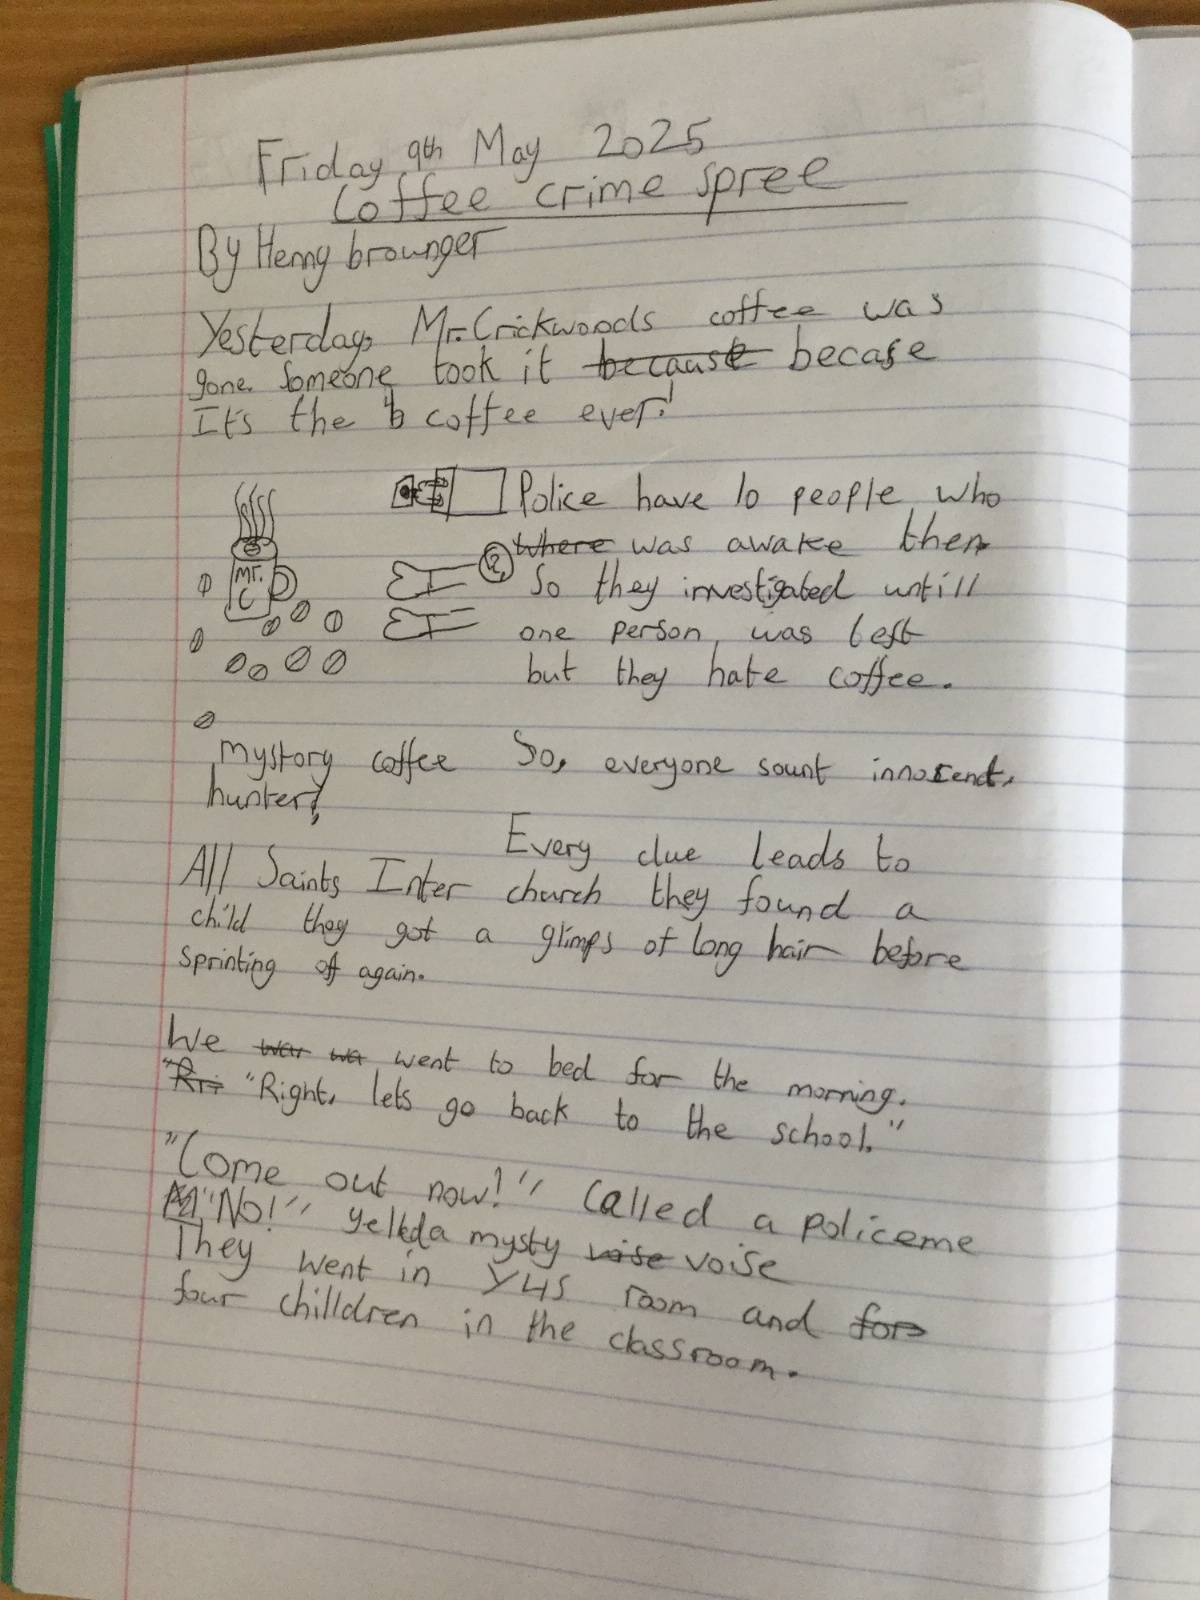 Friday 9th May 2025
Coffee crime spree
By Henny brounger
Yesterday, Mr. Crickwoods coffee was
gone. Someone took it because becase
It's the b coffee ever!
Police have 10 people who
Where was awake then
So they investigated untill
one person, was left
but they hate coffee.
Mr.
C
mystory coffee
hunter!,
So, everyone sount innosend.
Every clue leads to
All Saints Inter church they found a
child they got a glimps of long hair before
sprinting of again.
We war wa went to bed for the morning.
"Ri "Right, lets go back to the school."
"Come out now!" called a policeme
"No!" yelled a mysty voise voise
They went in Y4S room and for
four chilldren in the classroom.